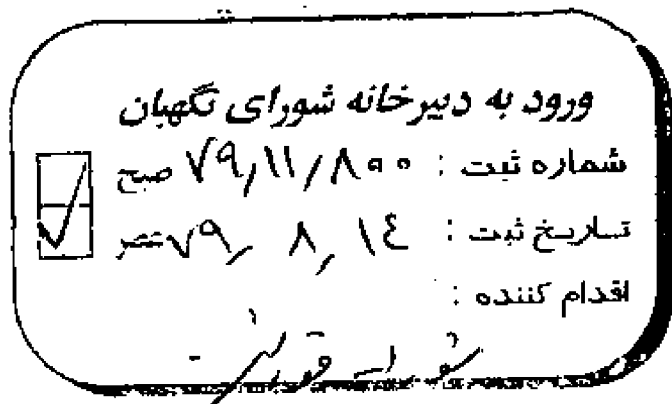 ورود به دبیرخانه شورای نگهبان
شماره ثبت : ۷۹/۱۱/۸۰۰ صبح
تاریخ ثبت : ۷۹/۸/۱۴ عصر
اقدام کننده :